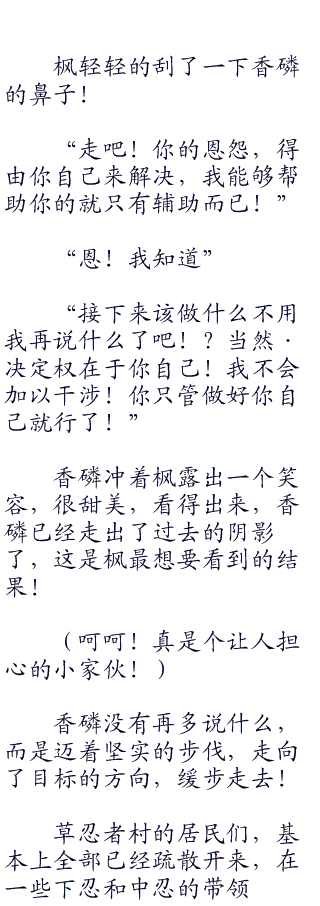 枫轻轻的刮了一下香磷
的鼻子！
“走吧！你的恩怨，得
由你自己来解决，我能够帮
助你的就只有辅助而已！”
“恩！我知道”
“接下来该做什么不用
我再说什么了吧！？当然·
决定权在于你自己！我不会
加以干涉！你只管做好你自
己就行了！”
香磷冲着枫露出一个笑
容，很甜美，看得出来，香
磷已经走出了过去的阴影
了，这是枫最想要看到的结
果！
（呵呵！真是个让人担
心的小家伙！）
香磷没有再多说什么，
而是迈着坚实的步伐，走向
了目标的方向，缓步走去！
草忍者村的居民们，基
本上全部已经疏散开来，在
一些下忍和中忍的带领